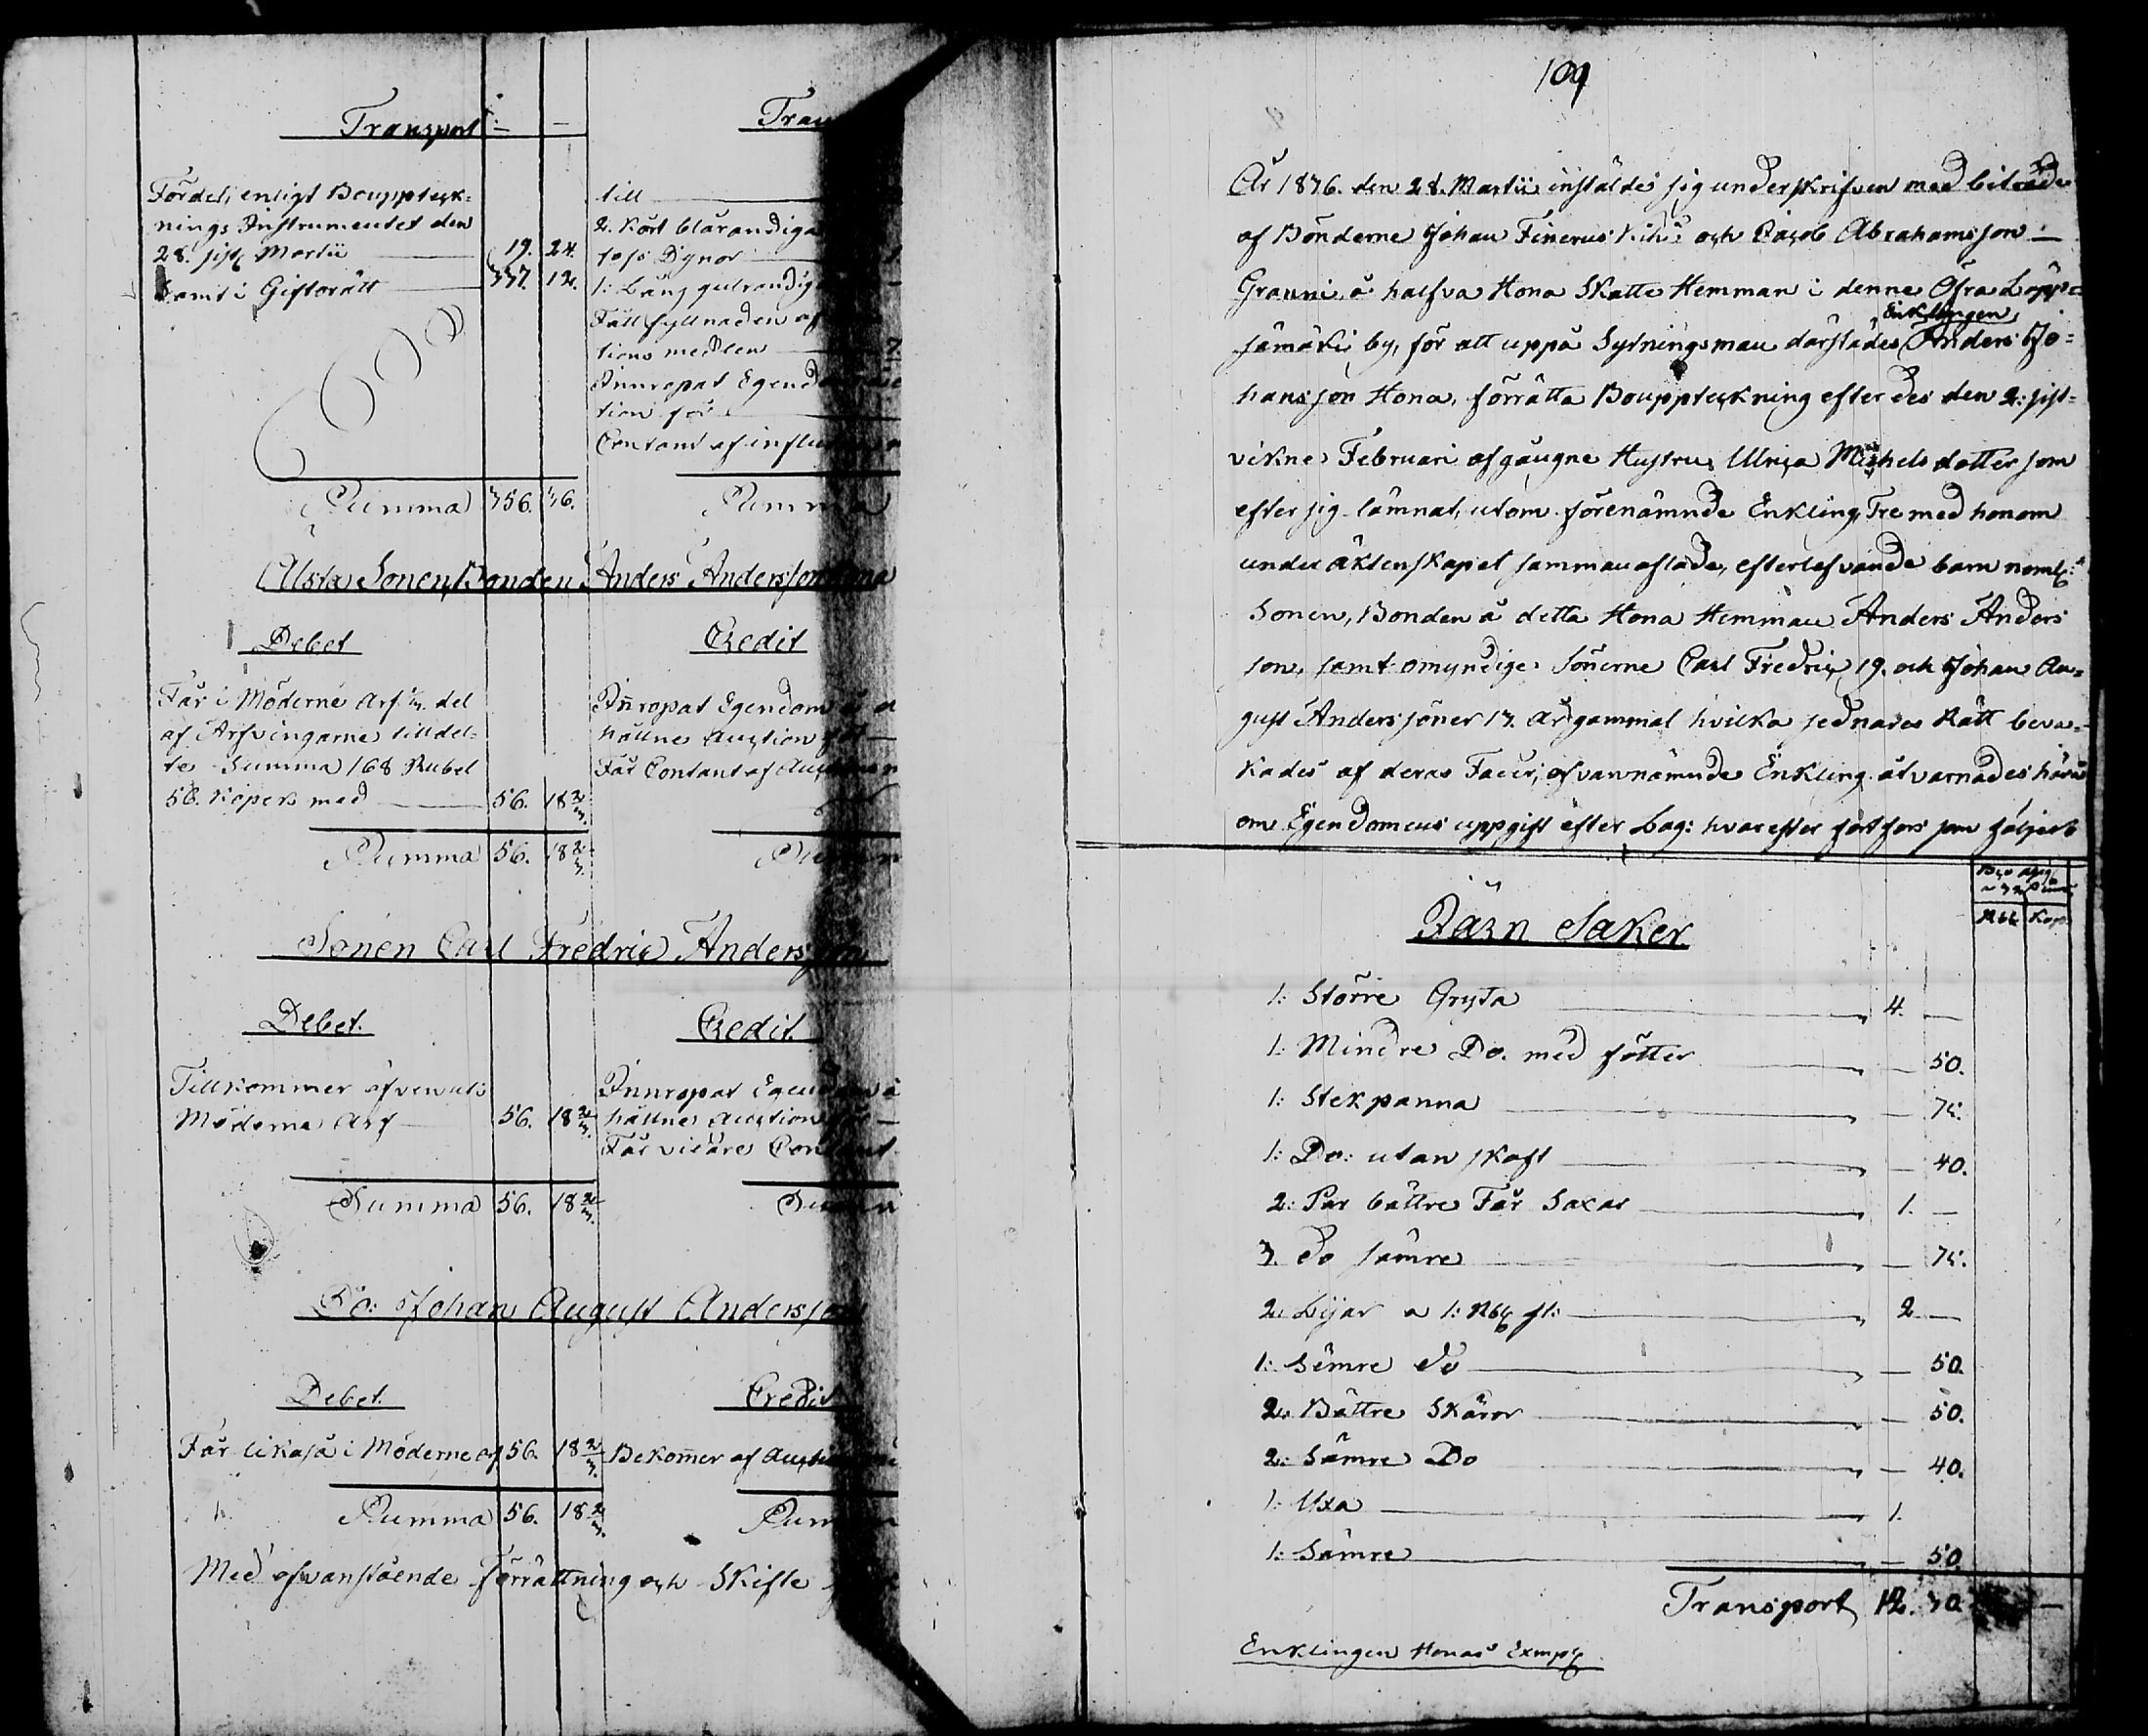 Transport
Fördel, enligt Boupptek=
nings Instrumentet den
28. sistl Martii 19. 24.
samt i Giftorätt 337. 12.
Summa 356. 36.
Tran
till
2. Kort blårandiga
Dynor
1: Lång gulrandig
Fäll fyllnaden af
tions medlen
Innropat Egend
tion för
Contant af influ
Summa
Älsta Sonen, Bonden Anders Andersson Hona
Debet
Får i Möderne Arf 1/3 del
af Arfvingarne tilldel=
te Summa 168 Rubel
56. Kopek med 56. 18 2/3.
Summa 56. 18 2/3.
Credit
Inropat Egendom å a
hållne Auction för
Får Contant af Auctions
Summa
Sonen Carl Fredric Andersson
Debet.
Tillkommer äfvenuti
Möderne Arf 56. 18 2/3.
Summa 56. 18 2/3.
Credit.
Innropat Egendom å
hållne Auction för
Får vidare Contant
Summa
Do: Johan August Andersson
Debet.
Får likaså i Möderne arf 56. 18 2/3.
Summa 56. 18 2/3.
Credit
Bekom̃er af Auction
Summa
Med ofvanstående Förrättning och Skifte
109
År 1836. den 28. Martii instälde sig underskrifven med biträde
af Bönderne Johan Finerus Kihs och Jacob Abrahamsson
Granni, å halfva Hona Skatte Hemman i denne Öfra Läpp=
Enklingen
jämäki by, för att uppå Sytningsman därstädes Anders Jo=
hansson Hona, förrätta Boupptekning efter des den 2: sist=
vikne Februari afgångne Hustru Ulrica Michels dotter som
efter sig lämnat, utom förenämnde Enkling, Tre med honom
under äktenskapet sammanaflade, efterlefvande barn neml:
Sonen, Bonden å detta Hona Hemman Anders Anders
son, samt omyndige Sönerne Carl Fredric 19. och Johan Au=
gust Anderssöner 13. år gammal hvilka sednares Rätt beva=
kades af deras Fader, ofvannämnde Enkling åtvarnades härå
om Egendomens uppgift efter Lag: hvarefter fortfors som följer
Rbl Kop
Järn Saker
1: Större Gryta 4. —
1: Mindre Do. med fötter — 50.
1: Stekpanna — 75.
1: Do: utan skaft — 40.
2: Par bättre Får Saxar 1. —
3. do sämre — 75.
2. Lijar a 1: Rbl st: 2 —
1: Sämre do — 50.
2. Bättre Skäror — 50.
2: Sämre Do — 40.
1: Uxa 1.
1: Sämre — 50.
Transport 12. 30.
Enklingen Honas Exempl